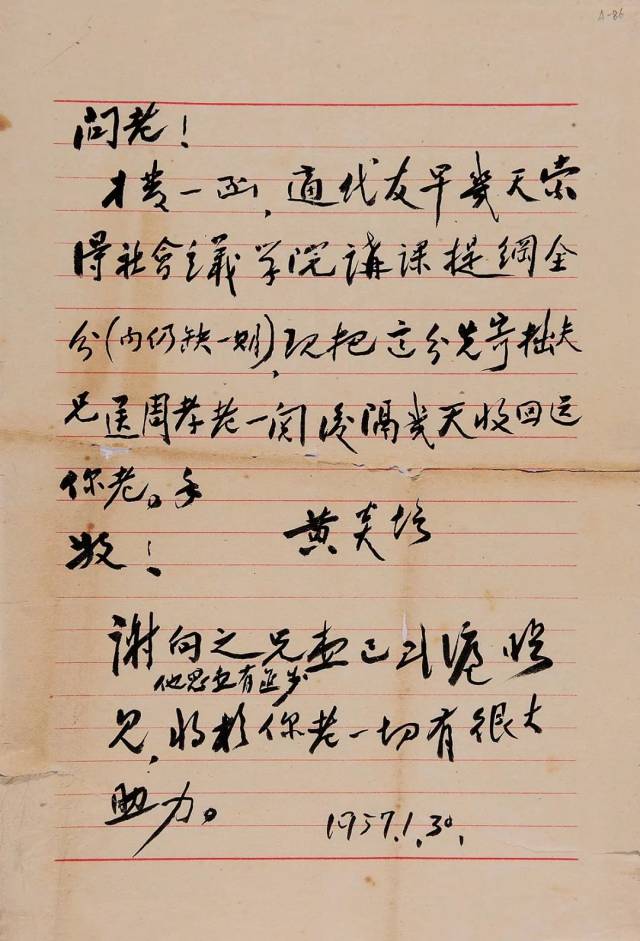 A-86
问老！
才发一函，适代友早幾天索
得社會主義学院講课提綱全
分（内仍缺一期），现把这分先寄拙夫
兄送周孝老一阅後隔幾天收回还
你老。手
敬！
黄炎培
谢向之兄想已到滬晤
他思想有进步
见，将於你老一切有很大
助力。
1957.1.30.